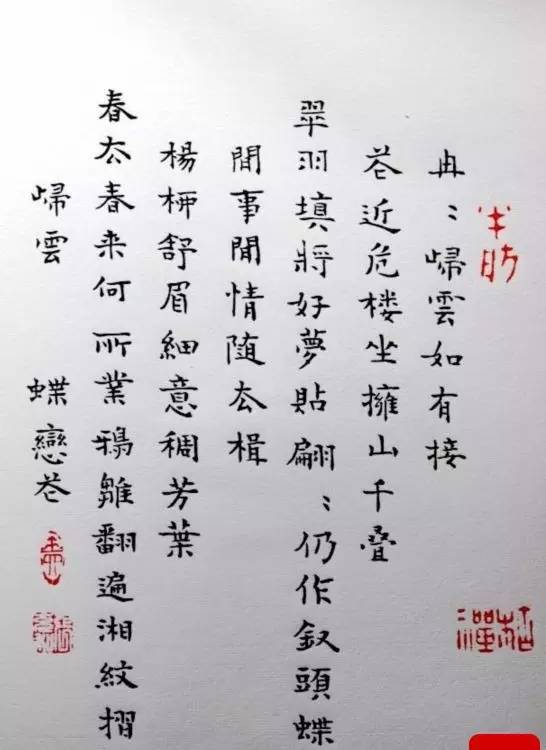 冉〻歸雲如有接
花近危楼坐擁山千叠
翠羽填將好夢貼翩〻仍作釵頭蝶
閒事閒情随去楫
楊柳舒眉細意稠芳葉
春去春来何所業鴉雛翻遍湘紋摺
歸雲 蝶戀花